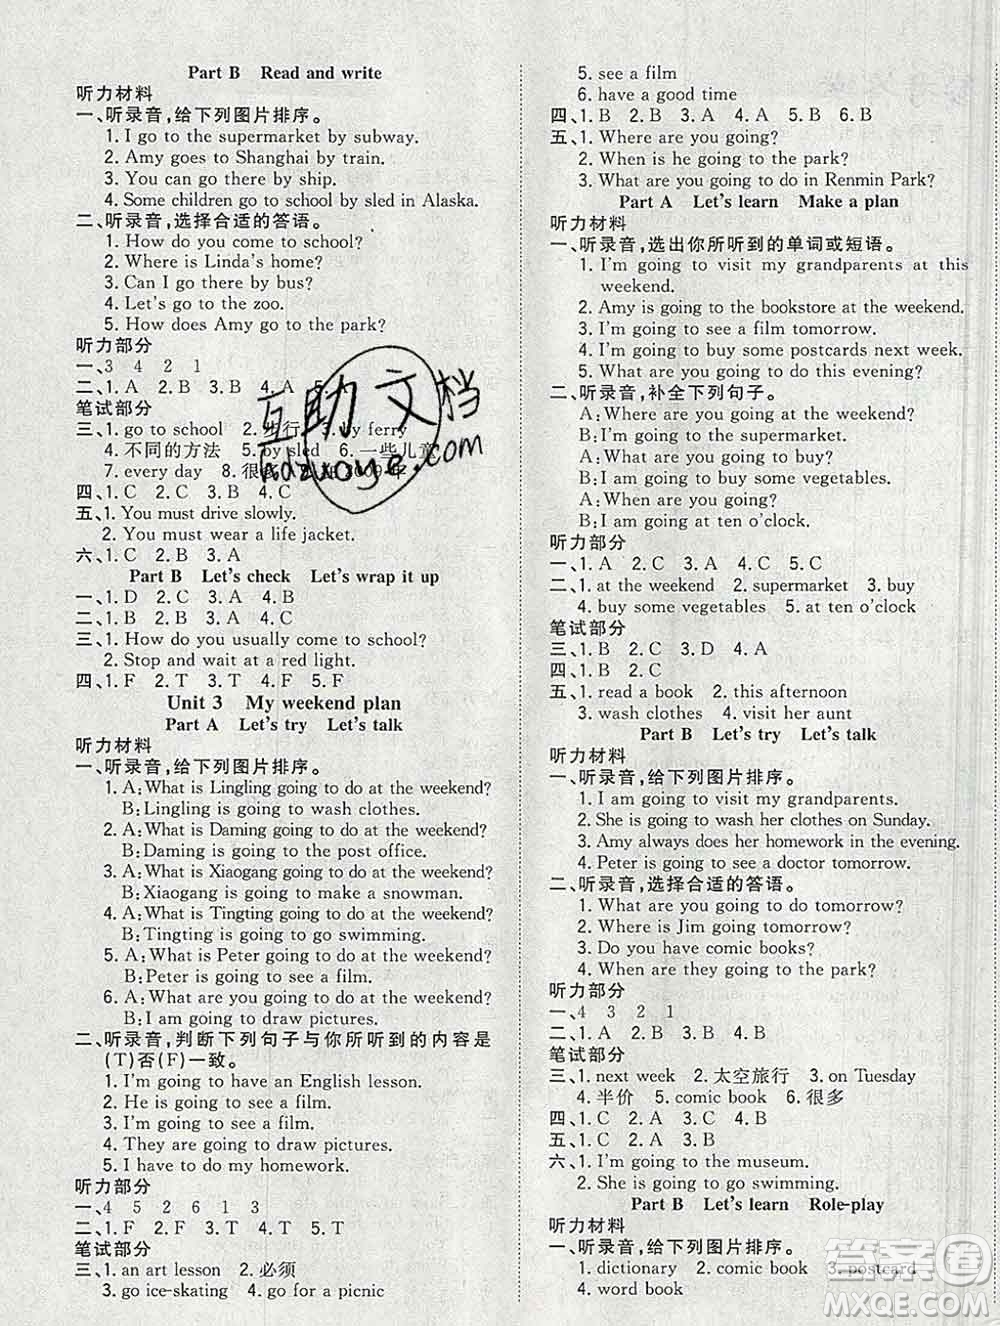 Part B Read and write
听力材料
一、听录音,给下列图片排序。
1. I go to the supermarket by subway.
2. Amy goes to Shanghai by train.
3. You can go there by ship.
4. Some children go to school by sled in Alaska.
二、听录音,选择合适的答语。
1. How do you come to school?
2. Where is Linda's home?
3. Can I go there by bus?
4. Let's go to the zoo.
5. How does Amy go to the park?
听力部分
一、3 4 2 1
二、1. A 2. B 3. B 4. A 5.
笔试部分
三、1. go to school 2. 步行 3. by ferry
4. 不同的方法 5. by sled 6. 一些儿童
7. every day 8. 很多
四、1. C 2. B 3. A 4. C 5. B
五、1. You must drive slowly.
2. You must wear a life jacket.
六、1. C 2. B 3. A
Part B Let's check Let's wrap it up
一、1. D 2. C 3. A 4. B
二、1. B 2. B 3. A 4. C
三、1. How do you usually come to school?
2. Stop and wait at a red light.
四、1. F 2. T 3. T 4. F 5. F
Unit 3 My weekend plan
Part A Let's try Let's talk
听力材料
一、听录音,给下列图片排序。
1. A:What is Lingling going to do at the weekend?
B:Lingling is going to wash clothes.
2. A:What is Daming going to do at the weekend?
B:Daming is going to the post office.
3. A:What is Xiaogang going to do at the weekend?
B:Xiaogang is going to make a snowman.
4. A:What is Tingting going to do at the weekend?
B:Tingting is going to go swimming.
5. A:What is Peter going to do at the weekend?
B:Peter is going to see a film.
6. A:What are you going to do at the weekend?
B:I am going to draw pictures.
二、听录音,判断下列句子与你所听到的内容是
(T)否(F)一致。
1. I'm going to have an English lesson.
2. He is going to see a film.
3. I'm going to see a film.
4. They are going to draw pictures.
5. I have to do my homework.
听力部分
一、4 5 2 6 1 3
二、1. F 2. F 3. T 4. T 5. T
笔试部分
三、1. an art lesson 2. 必须
3. go ice-skating 4. go for a picnic
5. see a film
6. have a good time
四、1. B 2. B 3. A 4. A 5. B 6. B
五、1. Where are you going?
2. When is he going to the park?
3. What are you going to do in Renmin Park?
Part A Let's learn Make a plan
听力材料
一、听录音,选出你所听到的单词或短语。
1. I'm going to visit my grandparents at this
weekend.
2. Amy is going to the bookstore at the weekend.
3. I'm going to see a film tomorrow.
4. I'm going to buy some postcards next week.
5. What are you going to do this evening?
二、听录音,补全下列句子。
A:Where are you going at the weekend?
B:I'm going to the supermarket.
A:What are you going to buy?
B:I'm going to buy some vegetables.
A:When are you going?
B:I am going at ten o'clock.
听力部分
一、1. A 2. B 3. C 4. C 5. C
二、1. at the weekend 2. supermarket 3. buy
4. buy some vegetables 5. at ten o'clock
笔试部分
三、1. B 2. C 3. D 4. A
四、1. B 2. C
五、1. read a book 2. this afternoon
3. wash clothes 4. visit her aunt
Part B Let's try Let's talk
听力材料
一、听录音,给下列图片排序。
1. I am going to visit my grandparents.
2. She is going to wash her clothes on Sunday.
3. Amy always does her homework in the evening.
4. Peter is going to see a doctor tomorrow.
二、听录音,选择合适的答语。
1. What are you going to do tomorrow?
2. Where is Jim going tomorrow?
3. Do you have comic books?
4. When are they going to the park?
听力部分
一、4 3 2 1
二、1. A 2. B 3. A 4. C
笔试部分
三、1. next week 2. 太空旅行 3. on Tuesday
4. 半价 5. comic book 6. 很多
四、1. C 2. B 3. C 4. B
五、1. C 2. A 3. B
六、1. I'm going to the museum.
2. She is going to go swimming.
Part B Let's learn Role-play
听力材料
一、听录音,给下列图片排序。
1. dictionary 2. comic book 3. postcard
4. word book
互助文档
hdzuoye.com
答案圈
MXQE.COM